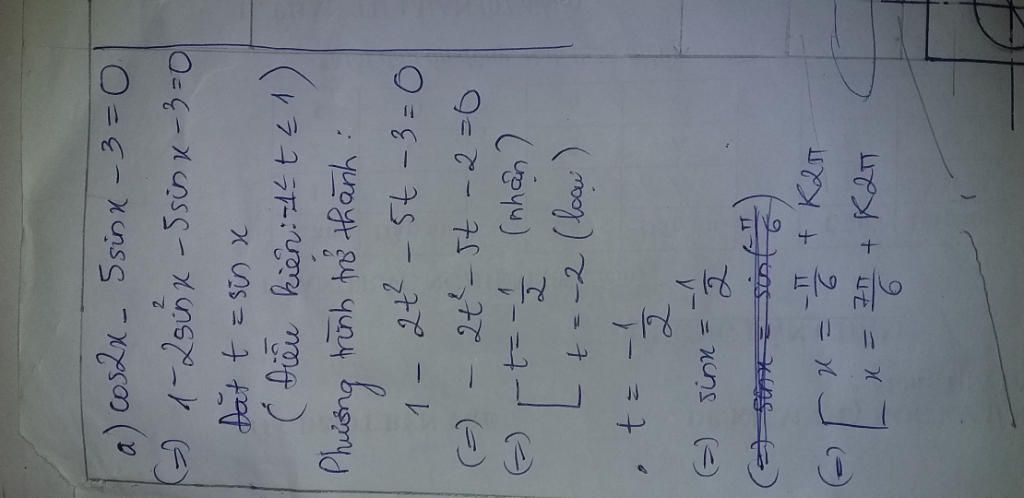 a) cos2x - 5sinx - 3 = 0
(=) 1 - 2sin²x - 5sinx - 3 = 0
Đặt t = sin x
(Điều kiện: -1 ≤ t ≤ 1)
Phương trình trở thành:
1 - 2t² - 5t - 3 = 0
(=) - 2t² - 5t - 2 = 0
(=) [ t = -1/2 (nhận)
t = -2 (loại)
• t = -1/2
(=) sinx = -1/2
(=) sinx = sin(-π/6)
(=) [ x = -π/6 + K2π
x = 7π/6 + K2π